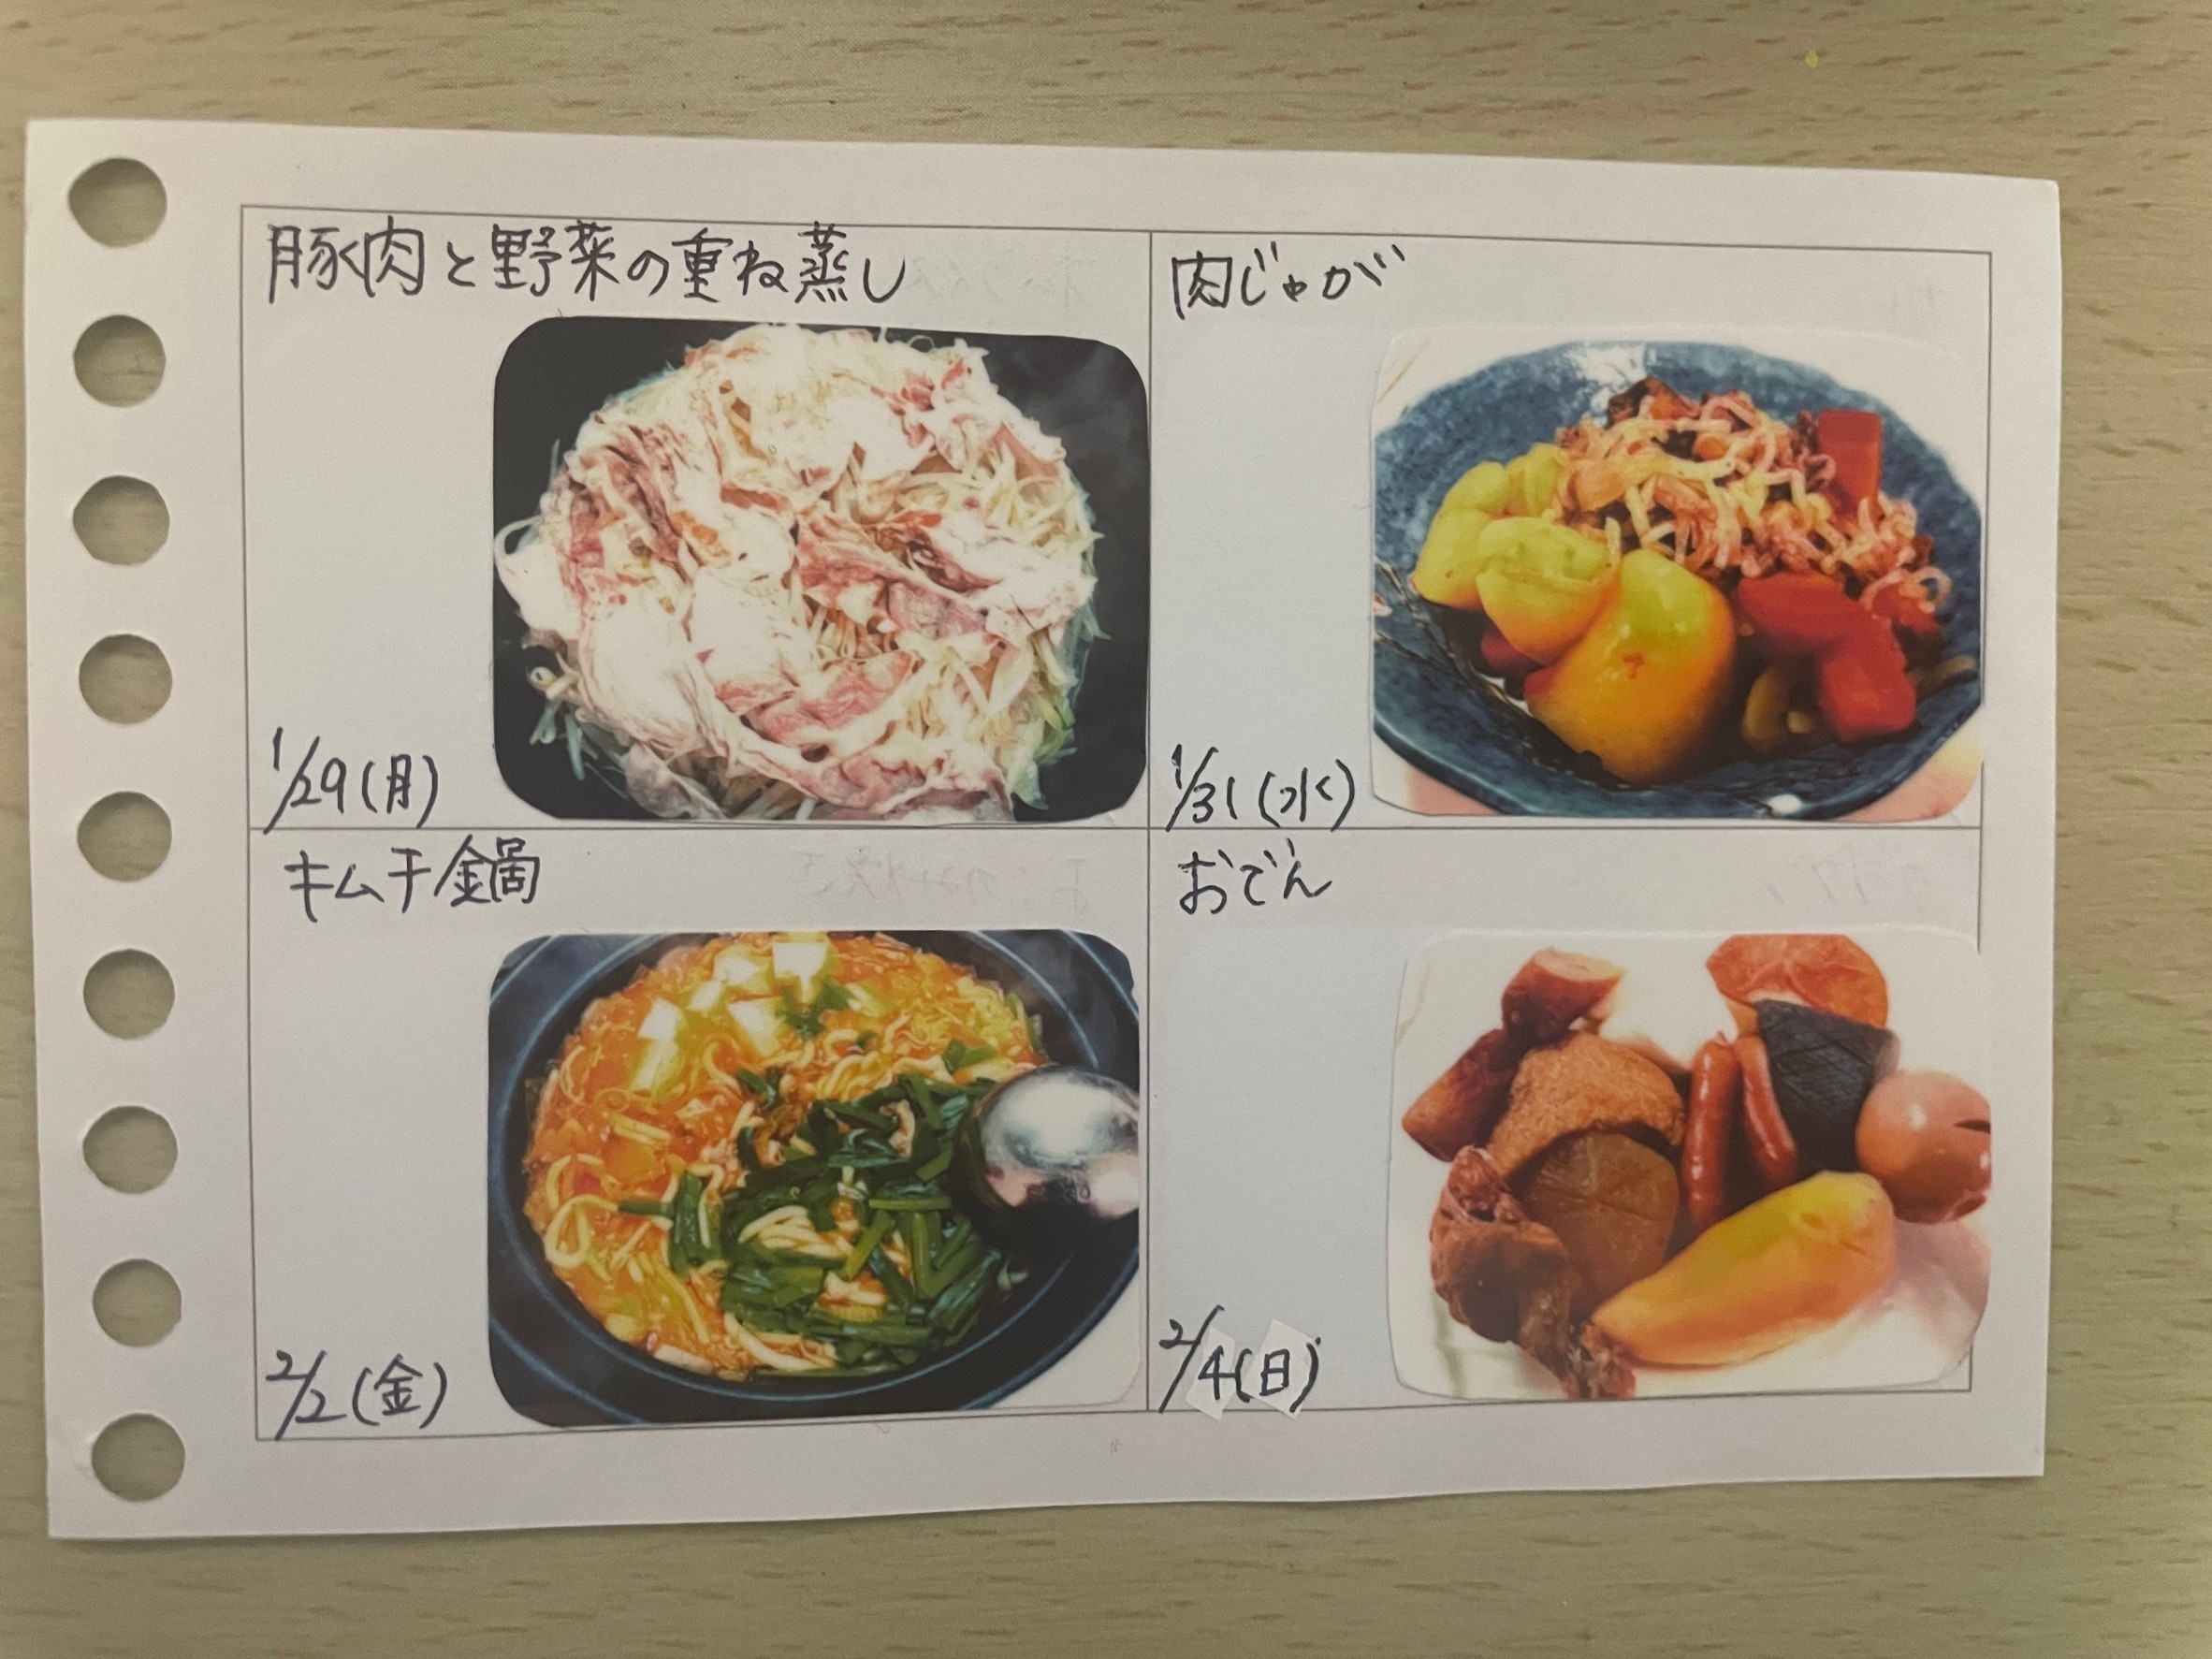 豚肉と野菜の重ね蒸し
1/29(月)
肉じゃが
1/31(水)
キムチ鍋
2/2(金)
おでん
2/4(日)